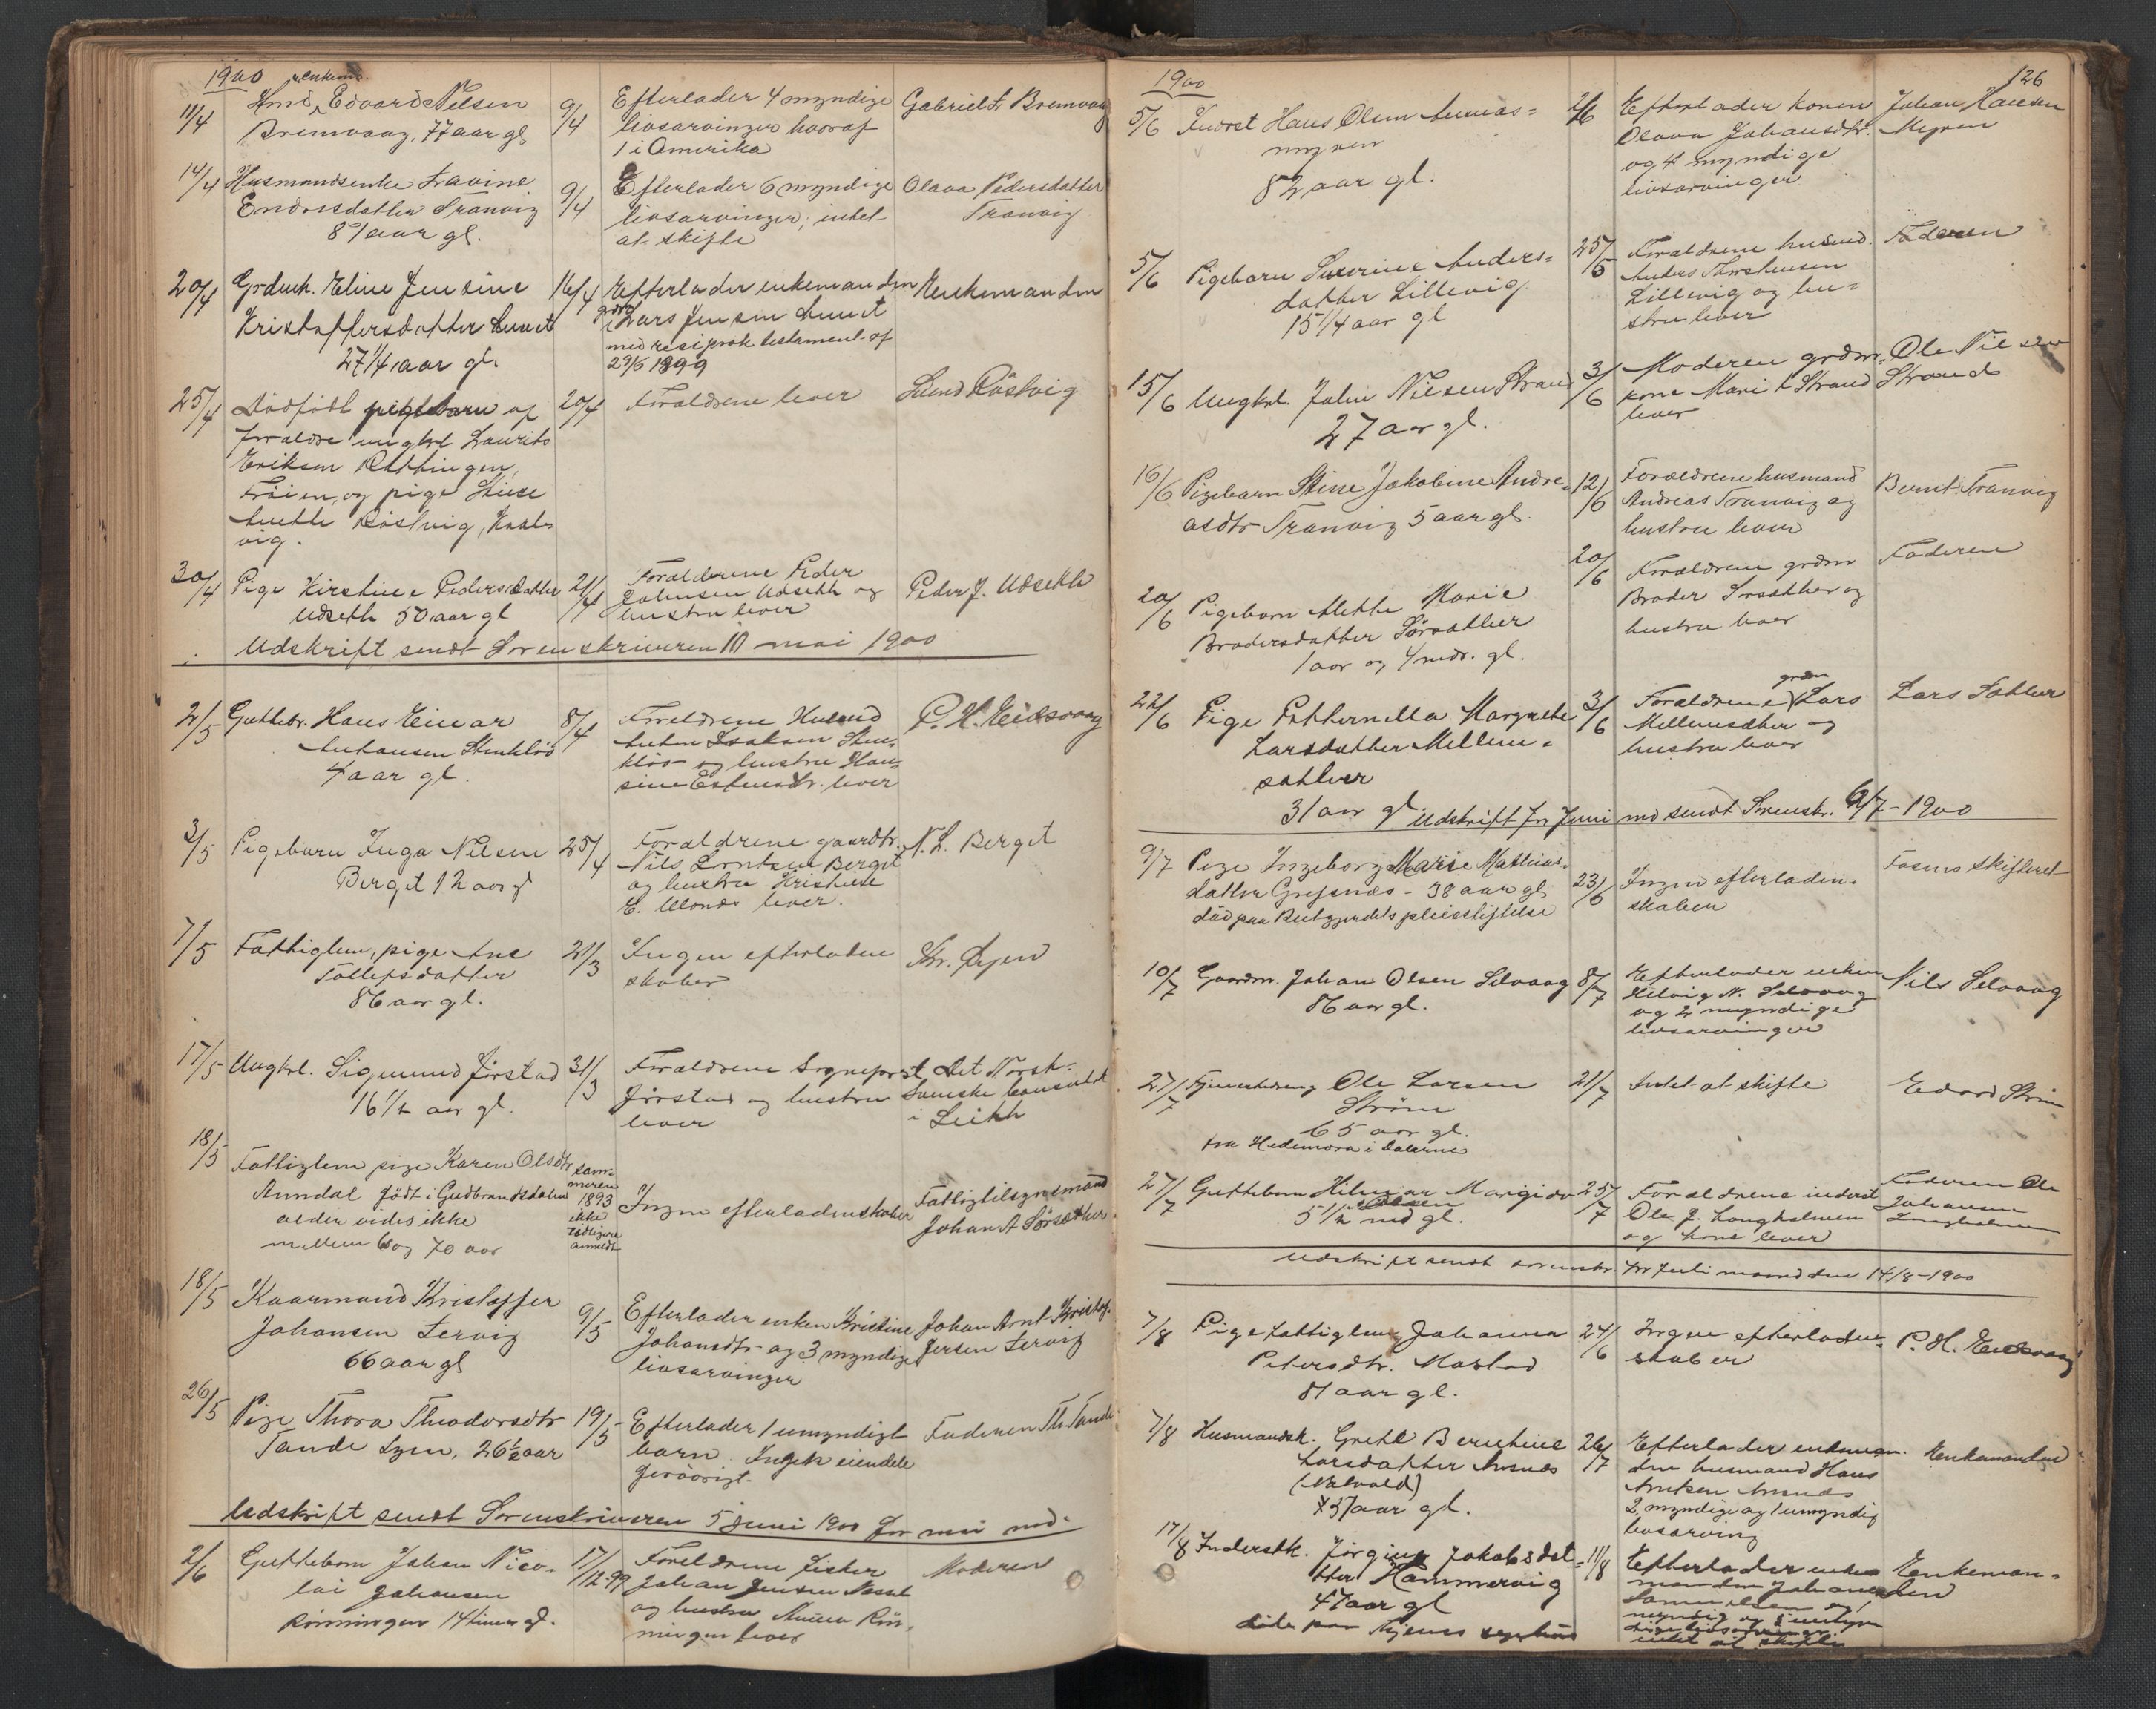 1900
enkem.
11/4 Hmd Edvard Nilsen 9/4 Efterlader 4 myndige Gabriel L Bremvaag
Bremvaag, 77 aar gl. livsarvinger hvoraf
1 i Amerika
14/4 Husmandsenke Lavine 9/4 Efterlader 6 myndige Olava Pedersdatter
Endresdatter Tranvig livsarvinger, intet Tranvig
89 aar gl. at skifte
20/4 Grdmk. Eline Jensine 16/4 Efterlader enkemanden Enkemanden
Kristoffersdatter Lunet grdm Lars Jensen Lunet
27 1/4 aar gl. med resiprok testament af
29/6 1899
25/4 Dødfødt pigebarn af 20/4 Forældrene lever Røstvig
forældre ungkrl Laurits
Eriksen
Frøien, og pige Stine
Anette Røstvig,
vig.
30/4 Pige Kirstine Pedersdatter 21/4 Forældrene Peder Peder J. Udseth
Udseth 50 aar gl Johnsen Udseth og
hustru lever
Udskrift sendt Sorenskriveren 10 mai 1900
2/5 Guttebr. Hans Einar 8/4 Foreldrene Husmd P. H. Eidsvaag
Antonsen Stenkløv Anton Isaksen Sten-
4 aar gl. kløv og hustru Han-
sine Estensdtr. lever
3/5 Pigebarn Inga Nilsen 25/4 Forældrene gaardbr. N. L. Berget
Berget 12 aar gl Nils Lorntsen Berget
og hustru Kristine
E. lever.
7/5 Fattiglem, pige Ane 21/3 Ingen efterladen Kr. Øyen
Tollefsdatter skaber
86 aar gl.
17/5 Ungkrl. Sigmund Jørstad 31/3 Forældrene Sogneprest Det Norsk-
16 1/2 aar gl. Jørstad og hustru Svenske konsulat
lever i Leith
18/5 Fattiglem pige Karen Olsdtr som- Ingen efterladenskaber Fattigtilsynsmand
Aundal født i Gudbrandsdalen meren Johan A Sørsæther
alder vides ikke 1893
mellem 60 og 70 aar ikke
tidligere
anmeldt
18/5 Kaarmand Kristoffer 9/5 Efterlader enken Kristine Johan Arnt Kristof-
Johansen Lervig Johansdtr. og 3 myndige fersen Lervig
66 aar gl livsarvinger
26/5 Pige Thora Theodorsdtr 19/5 Efterlader 1 umyndigt Faderen Th. Tande
Tande Lyen, 26 1/2 aar barn. Ingen eiendele
forøvrigt.
Udskrift sendt Sorenskriveren 5 juni 1900 for mai md.
2/6 Guttebarn Johan Nico- 17/12-99 Foreldrene fisker Moderen
lai Johansen Johan Jensen
Rønningen 14 timer gl. og hustru Anna Røn-
ningen lever
1900
126
5/6 Inderst Hans Olsen Aunas- 2/6 Efterlader konen Johan Hansen
myren Olava Johansdtr. Myren
82 aar gl. og 4 myndige
livsarvinger
5/6 Pigebarn Severine Anders- 25/5 Forældrene husmd. Faderen
datter Lillevig Anders Thorstensen
15 1/4 aar gl Lillevig og hu-
stru lever
15/6 Ungkrl. John Nilsen Strand 3/6 Moderen grdm. Ole Nilsen
27 aar gl. kone Marie Strand Strand
lever
16/6 Pigebarn Stine Jakobine Andre- 12/6 Forældrene husmand Bernt Tranvig
asdtr Tranvig 5 aar gl. Andreas Tranvig og
hustru lever
20/6 Pigebarn Mette Marie 20/6 Forældrene grdm Faderen
Brodersdatter Sørsæther Broder Sørsæther og
1 aar og 4 mdr. gl. hustru lever
22/6 Pige Petternella Margrethe 3/6 Forældrene grdm Lars Lars Sæther
Larsdatter Mellem- Mellemsæther og
sæther hustru lever
31 aar gl Udskrift for Juni md sendt Sorenskr. 6/7-1900
9/7 Pige Ingeborg Marie Mathias- 23/6 Ingen efterladen- Fosnes skifteret
datter Grefsnes - 38 aar gl. skaber
død paa Reitgjerdets pleiestiftelse
10/7 Gaardm. Johan Olsen Selvaag 8/7 Efterlader enken Nils Selvaag
86 aar gl. Helvig N. Selvaag
og 2 myndige
livsarvinger
27/7 Ole Larsen 21/7 Intet at skifte Edvard Strøm
Strøm
65 aar gl.
fra Hedemora i Dalarne
27/7 Guttebarn Hilmar Marigido 25/7 Forældrene inderst Faderen Ole
Olsen Ole J. Langholmen Johansen
5 1/2 md gl. og kone lever Langholmen
Udskrift sendt sorenskr. for Juli maaned den 14/8-1900
7/8 Pige fattiglem Johanna 24/6 Ingen efterladen- P. H. Eidsvaag
Petersdtr. Mastad skaber
81 aar gl.
7/8 Husmandsk. Grethe Berntine 26/7 Efterlader enkeman- Enkemanden
Larsdatter Aunes den husmand Hans
(Valvold) Antksen Aunes
57 aar gl. 2 myndige og 1 umyndig
livsarving
17/8 Inderstk. Jørgine Jakobsdat- 11/8 Efterlader enke- Enkeman-
ter Hammervig manden Johan den
47 aar gl Samuelsen og 1
døde paa sygehus myndig og 5 umyn-
dige livsarvinger.
intet at skifte